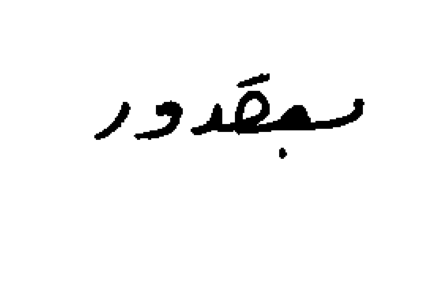 بمقدور